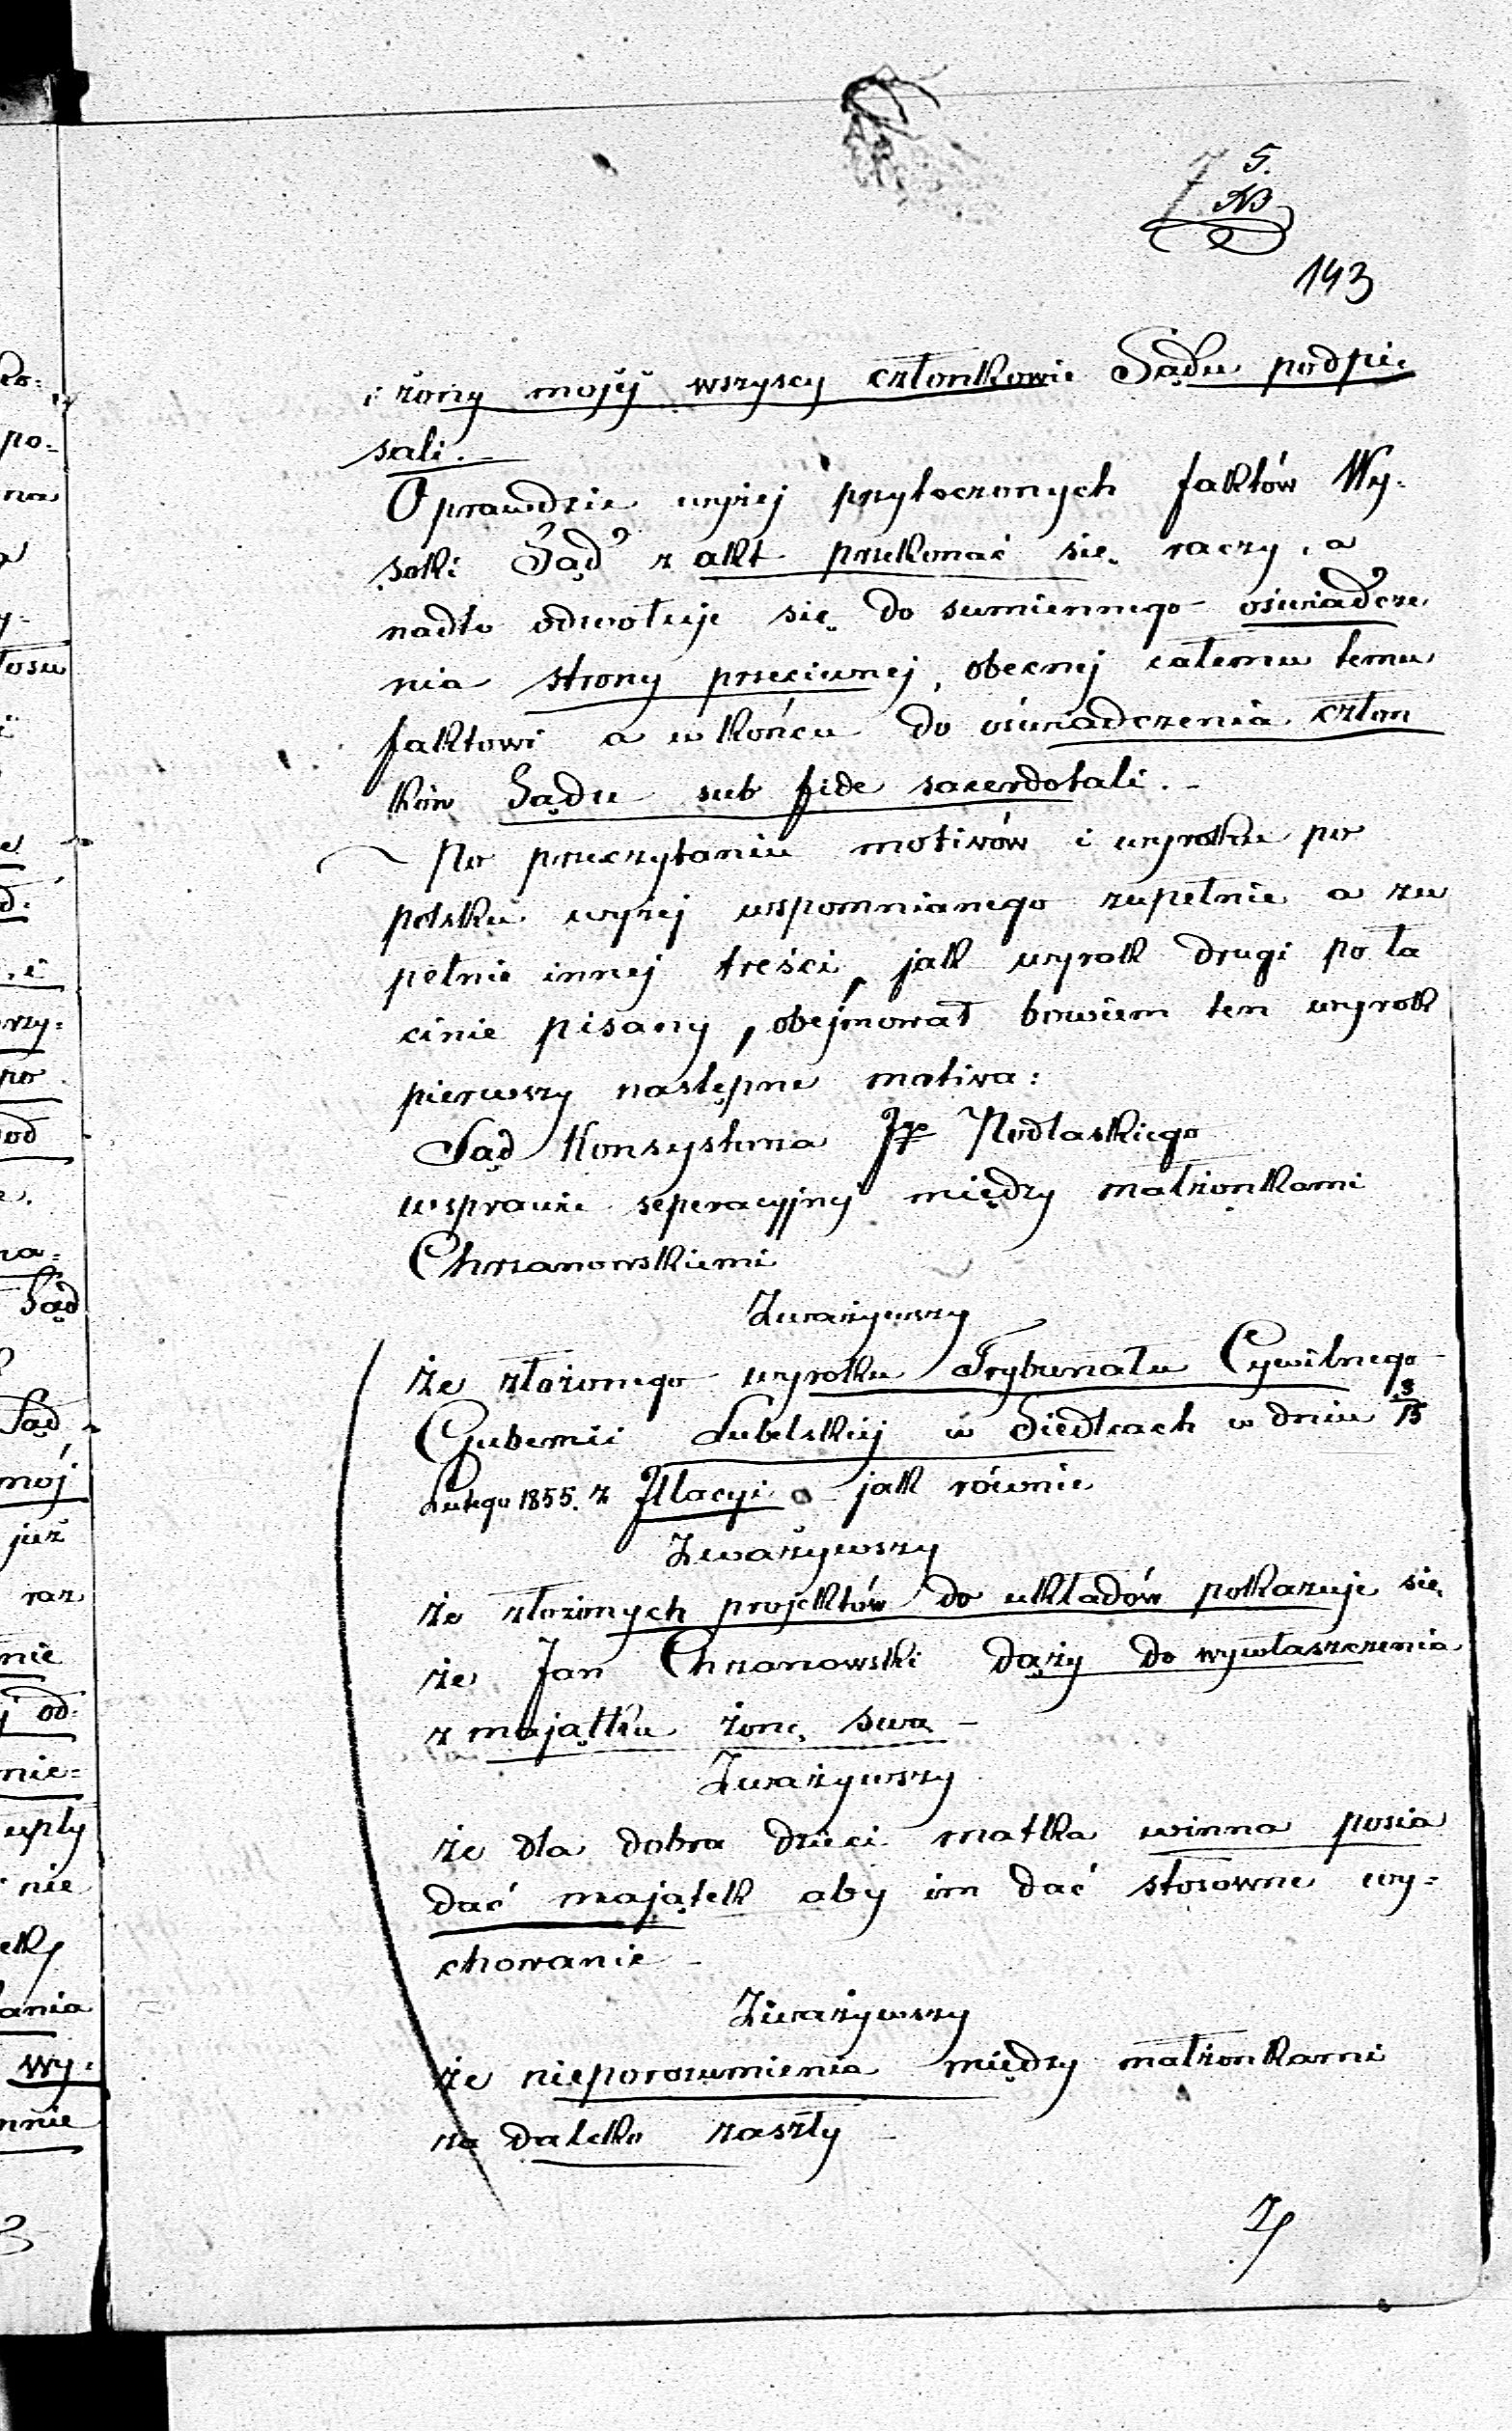 5.
NB
143
i żony mojéj wszyscy członkowie Sądu podpi=
sali.-
O prawdzie wyżej przytoczonych faktów Wy-
soki Sąd z akt przekonać się raczy, a
nadto odwołuje się do sumiennego oświadcze
nia strony przeciwnej, obecnej całemu temu
faktowi a w końcu do oświadczenia człon
ków Sądu sub fide sacerdotali.-
Po przeczytaniu motivów i wyroku po
polsku wyżej wspomnianego zupełnie a zu
pełnie innej treści, jak wyrok drugi po ła
cinie pisany, obejmował bowiem ten wyrok
pierwszy następne motiva:
Sąd Konsystorza Podlaskiego
w sprawie seperacyjnej między małżonkami
Chrzanowskiemi
Zważywszy
że złożonego wyroku Trybunału Cywilnego
Gubernii Lubelskiej w Siedlcach w dniu 3/15
Lutego 1855. z Illacyi jak równie
Zważywszy
że złożonych projektów do układów pokazuje się
że Jan Chrzanowski dąży do wywłaszczenia
z majątku żonę swą -
Zważywszy
że dla dobra dzieci matka winna posia
dać majątek aby im dać stosowne wy=
chowanie -
Zważywszy
że nieporozumienia między małżonkami
za daleko zaszły -
ko:
po:
na
łosu
i
rzy:
po
od
ra:
Sąd
Sąd
mój
już
raz
nie
j od:
mie:
upły
nie
ania
wy:
mnie